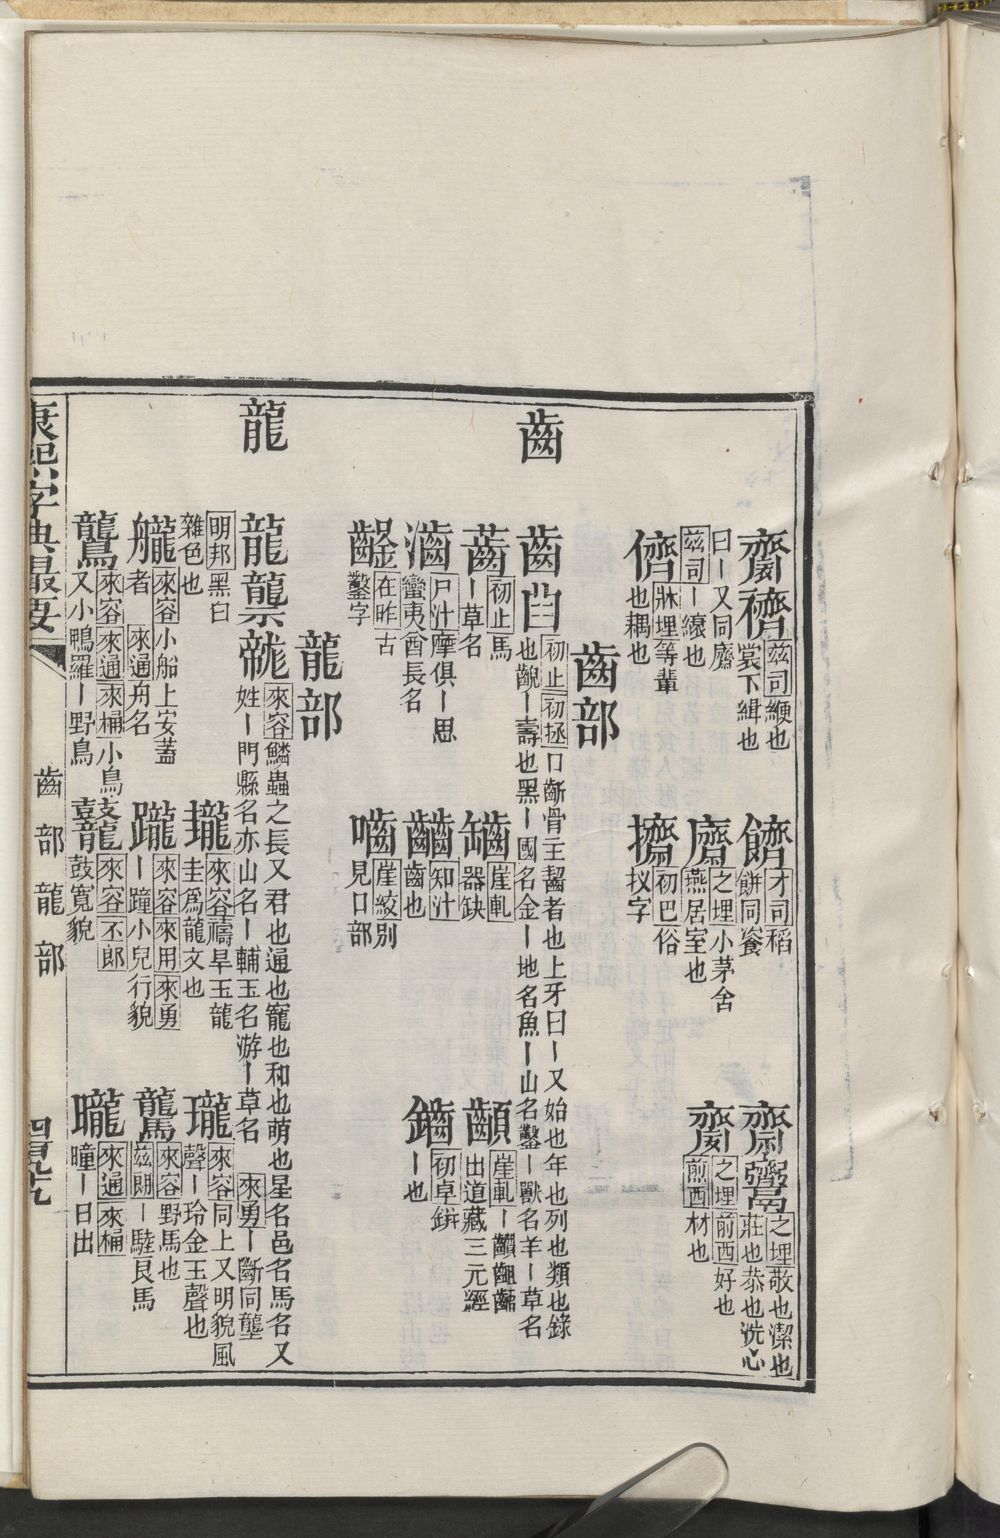 齋
穧
玆司緶也
裳下緝也
䭣
才司稻
餅同餈
齋
之埋敬也潔也
莊也恭也洗心
曰丨又同齍
玆司丨縗也
齌
之埋小茅舍
燕居室也
之埋前西好也
煎西材也
儕
牀埋等輩
也耦也
擠
初巴俗
扠字
齒部
齒
齒
初止初拯口齗骨主齧者也上牙曰丨又始也年也列也類也錄
也齯丨壽也黑丨國名金丨地名魚丨山名鑿丨獸名羊丨草名
初止馬
丨草名
崖軋
器缺
崖軋丨
出道藏三元經
尸汁摩俱丨思
蠻夷酋長名
知汁
齒也
初卓鉼
丨也
在昨古
鑿字
嚙
崖絞別
見口部
龍部
龍
龍
來容鱗蟲之長又君也通也寵也和也萌也星名邑名馬名又
姓丨門縣名亦山名丨輔玉名游丨草名 來勇丨斷同壟
明邦黑白
雜色也
瓏
來容禱旱玉龍
圭爲龍文也
瓏
來容同上又明貌風
聲丨玲金玉聲也
來容小船上安蓋
者 來通舟名
躘
來容來用來勇
丨蹱小兒行貌
驡
來容野馬也
玆朗丨駔良馬
鸗
來容來通來桶小鳥
又小鴨羅丨野鳥
來容丕郎
鼓寬貌
曨
來通來桶
曈丨日出
康熙字典最要 齒部 龍部 四百九十九